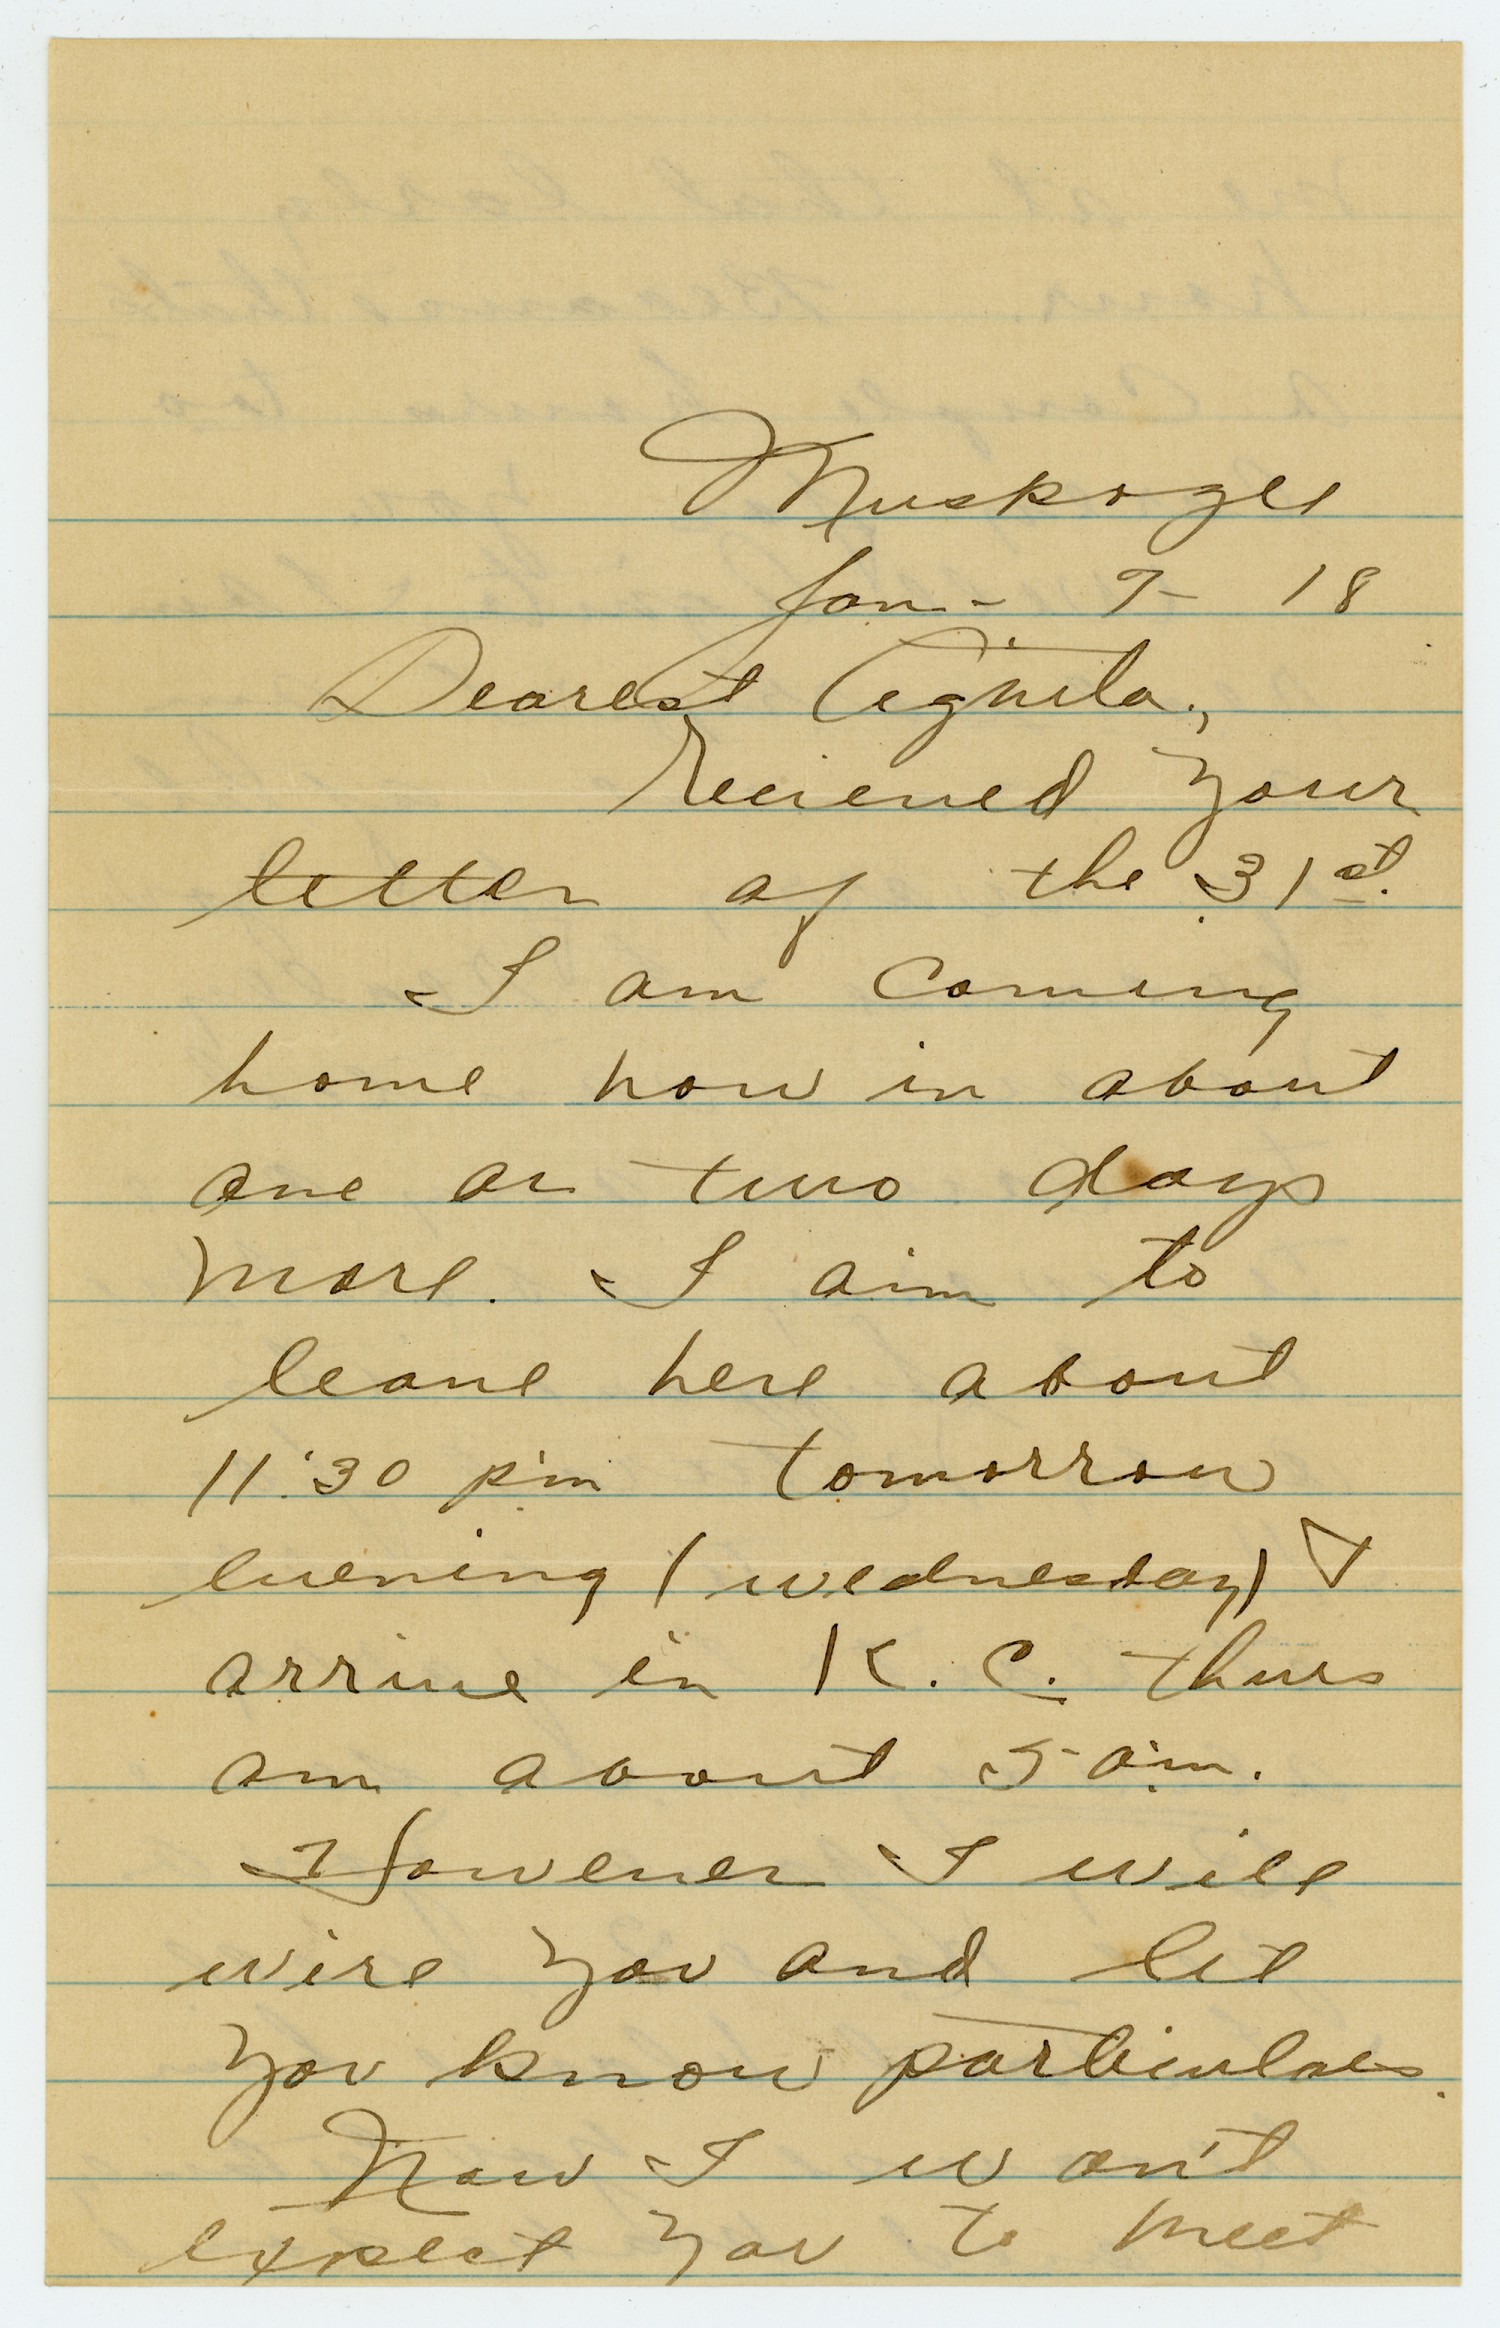 Muskogee
Jan - 7 - 18
Dearest
Recieved your
letter of the 31st.
I am coming
home now in about
one or two days
more. I aim to
leave here about
11:30 p.m tomorrow
evening (wednesday) &
arrive in K. C. thurs
am about 5 a.m.
However I will
wire you and let
you know particulars.
Now I won't
expect you to meet